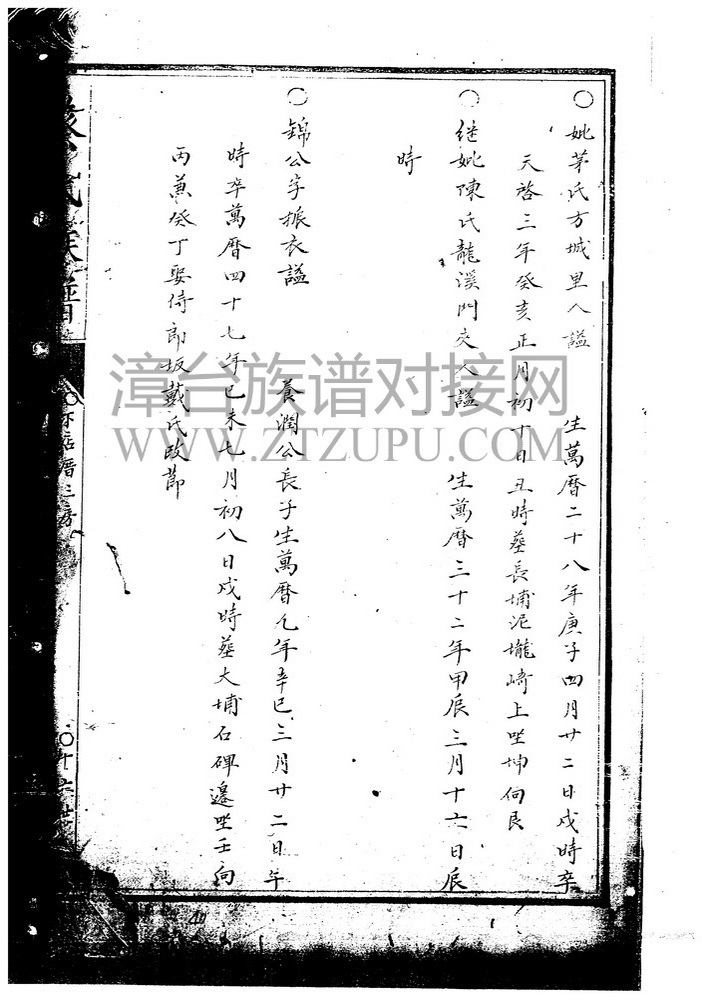 ○妣茅氏方城里人謚 生萬曆二十八年庚子四月廿二日戍時卒
天啓三年癸亥正月初十日丑時葬長埔泥壠崎上坐坤向艮
○继妣陳氏龍溪門交人謚 生萬曆三十二年甲辰三月十六日辰
時
○錦公字振衣謚 養潤公長子生萬曆九年辛巳三月廿二日午
時卒萬曆四十七年己未七月初八日戍時葬大埔石碑邊坐壬向
丙兼癸丁娶倚郎坂戴氏改節
氏族譜
店厝三房
○十六世
漳台族谱对接网
WWW.ZTZUPU.COM